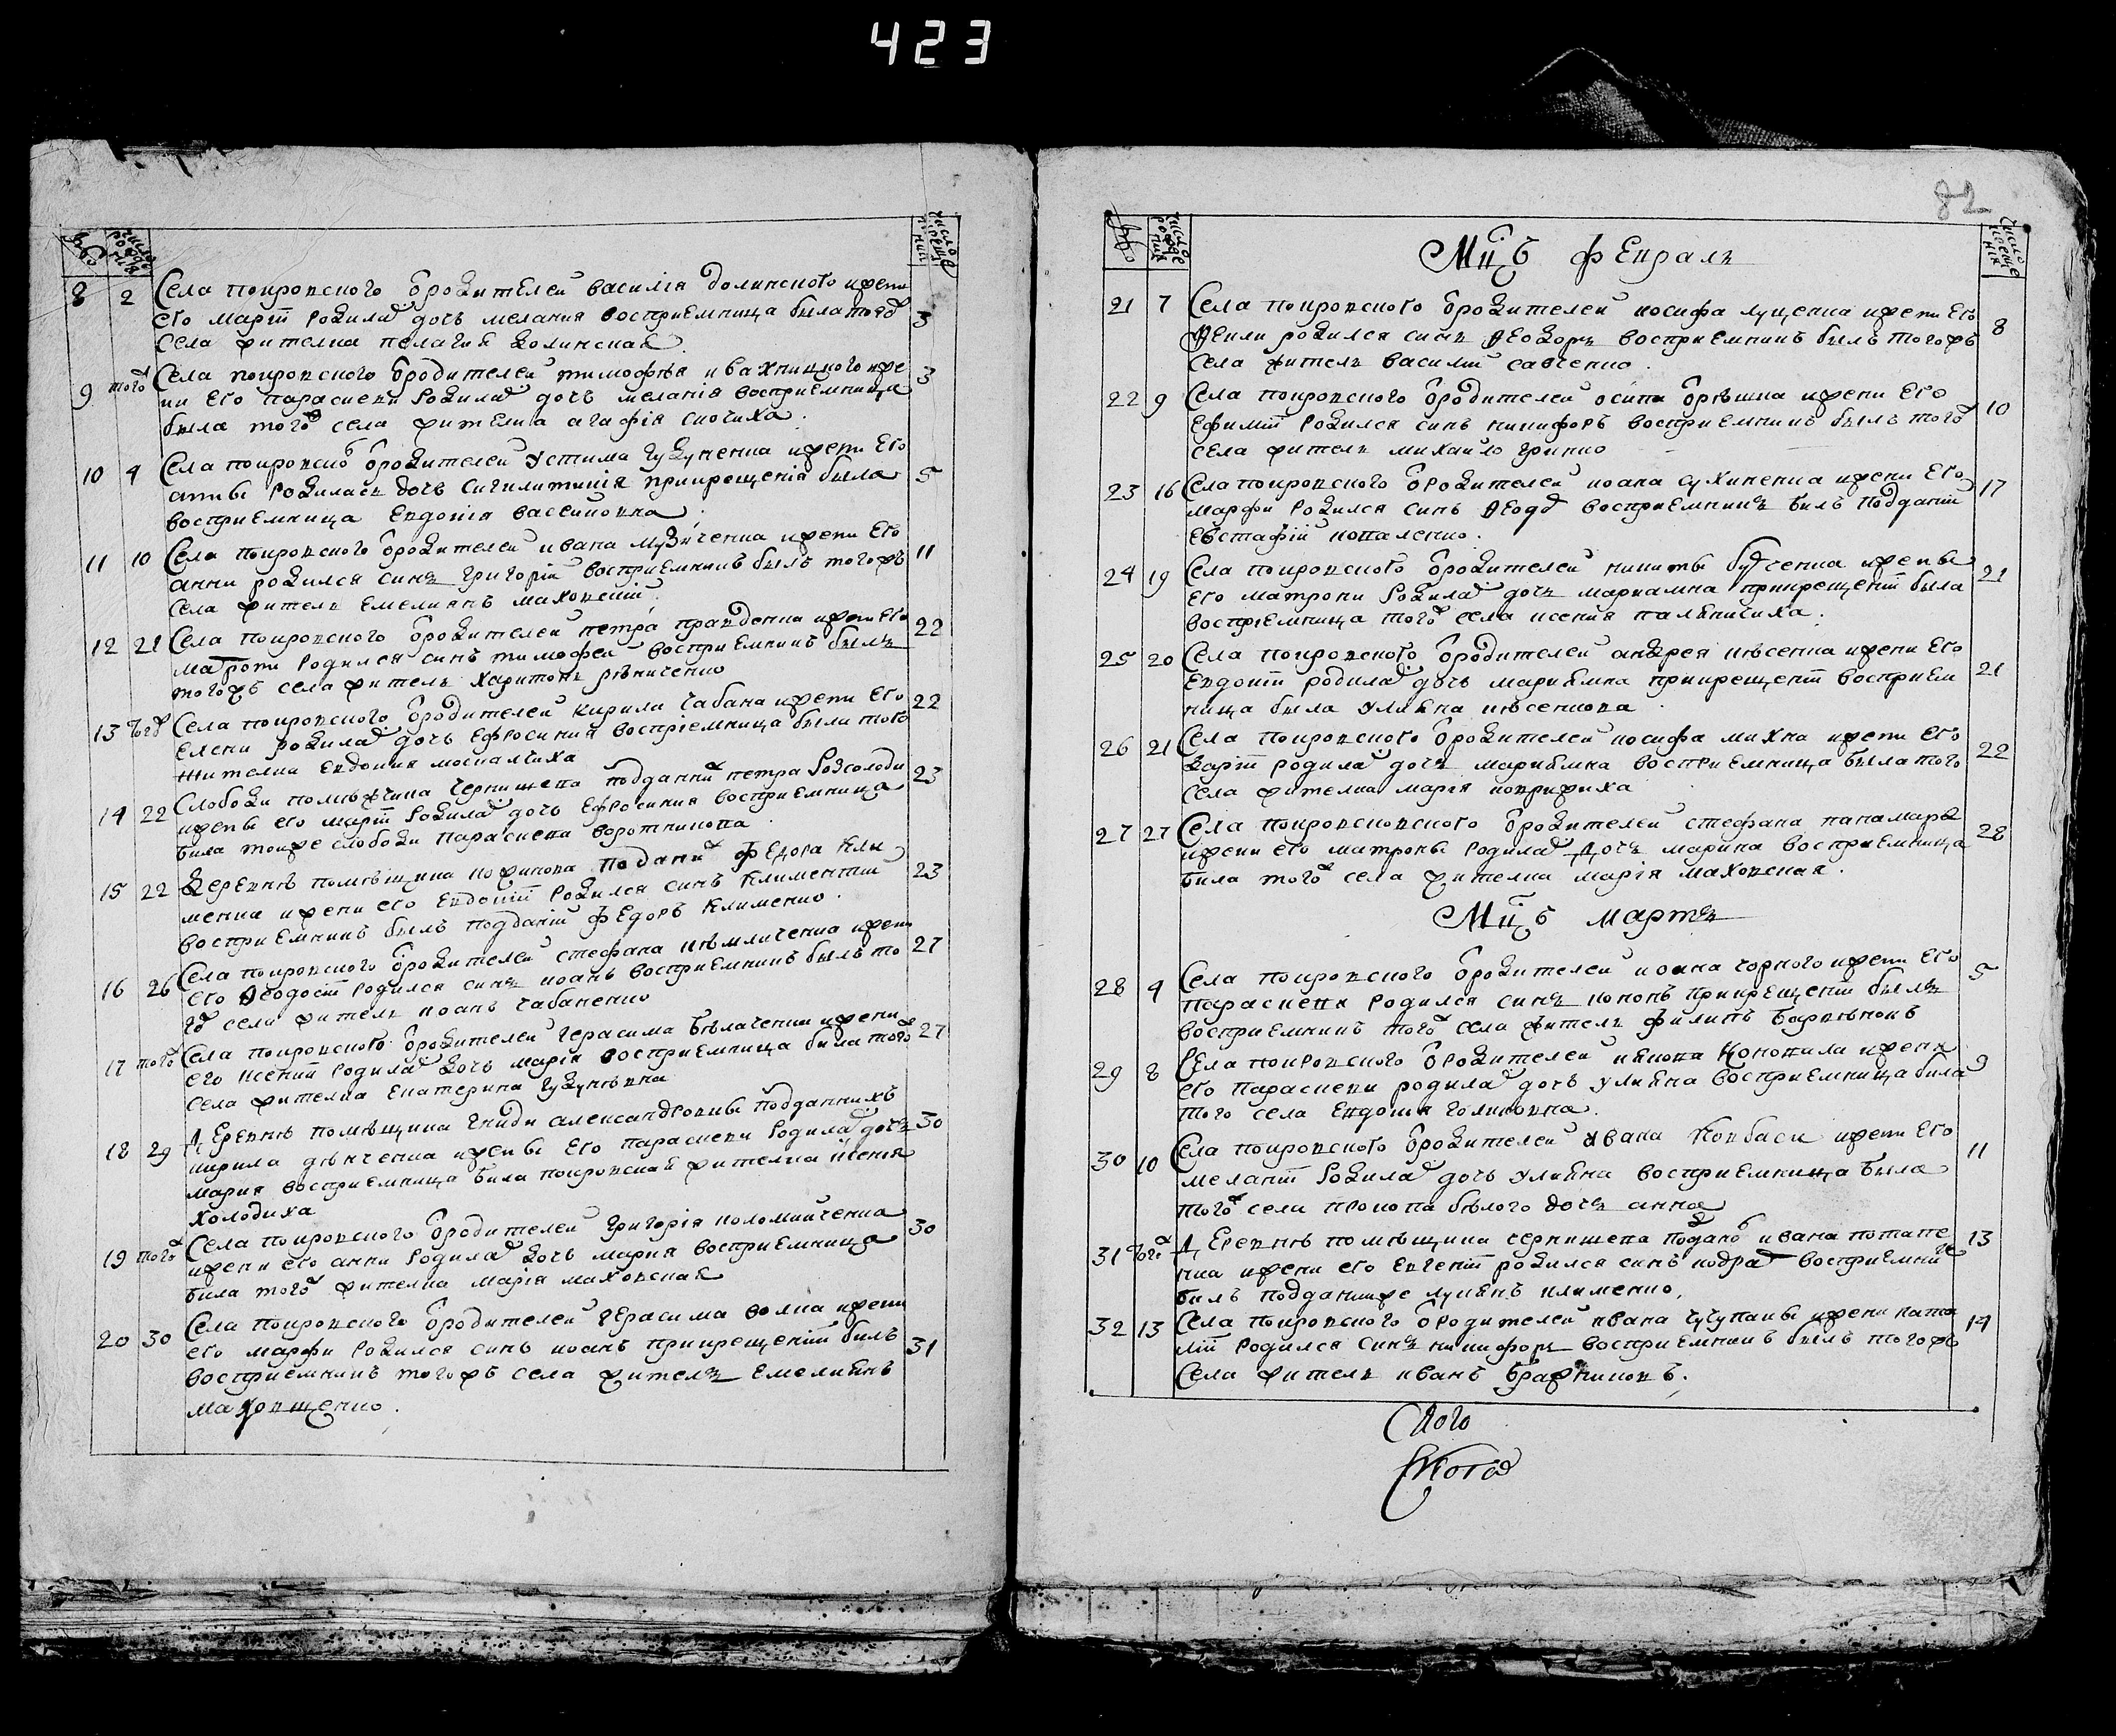 423
82
№ число рождения число крещения
8 2 Села покровского ѿ родителей василія долинского и жени 3
его марѳі родила дочь мелания восприемница была того
села жителка пелагия долинская
9 того Села покровского ѿ родителей тимофѣя ивахницкого и же 3
ни его парасцеви родила дочь меланія восприемница
была того села жителка агафія
10 4 Села покровско ѿ родителей устима гужуненка и жени его 5
родилась дочь прикрещенія была
восприемница евдокія
11 10 Села покровского ѿ родителей ивана музиченка и жени его 11
анни родился синъ григорій восприемникъ былъ тогожъ
села житель емелиянъ маховский
12 21 Села покровского ѿ родителей петра правденка и жени его 22
матрони родился синъ тимофей восприемникъ былъ
тогожъ села житель харитонъ рѣзниченко
13 того Села покровского ѿ родителей кирили чабана и жени его 22
елени родила дочь ефросиния воспріемница были того
жителка евдокия москалчиха
14 22 Слободи помѣщика чернишева подданий петра 23
и жены его марѳі родила дочь ефросиния восприемница
била тойже слободи парасцева воротникова
15 22 деревнѣ помѣщика подданий федора кли 23
менка и жени его евдокіи родился синъ климентий
восприемникъ былъ подданій федоръ клименко
16 26 Села покровского ѿ родителей стефана и жени 27
его ѳеодосіи родился синъ иоанъ восприемникъ былъ то
го села житель иоанъ чабаненко
17 того Села покровского ѿ родителей герасима бѣлаченки и жени 27
его ксении родила дочь марія восприемница была того
села жителка екатерина гужуновна
18 29 деревнѣ помѣщика гниди александровны подданнихъ 30
кирила дяченка и жены его парасцеви родила дочь
мария восприемница била покровская жителка ксения
холодиха
19 того Села покровского ѿ родителей григорія коломийченка 30
и жени его анни родила дочь мария восприемница
била того жителка марія маховская
20 30 Села покровского ѿ родителей герасима волка и жени 31
его марфи родился синъ иоанъ прикрещеніи билъ
восприемникъ тогожъ села житель емелиянъ
№ число рождения число крещения
Мцъ феврал
21 7 Села покровского ѿ родителей иосифа луценка и жени его 8
ѳекли родился синъ ѳеодоръ восприемникъ былъ тогожъ
села жителъ василій савченко
22 9 Села покровского ѿ родителей осипа орѣшка и жени его 10
ефиміи родился синъ никифоръ восприемникъ былъ того
села жителъ михайло гринко
23 16 Села покровского ѿ родителей иоана сухиненка и жени его 17
марфи родился синъ ѳеодо восприемникъ билъ подданій
евстафій коваленко
24 19 Села покровского ѿ родителей никиты бутченка и жены 21
его матрони родила дочь мариамна прикрещеніи была
воспріемница того села ксения паляничиха
25 20 Села покровского ѿ родителей андрея кѣсенка и жени его 21
евдокіи родила дочь мариямна прикрещеніи восприем
ница была улияна кѣсенкова
26 21 Села покровского ѿ родителей иосифа махна и жени его 22
варѳі родила дочь марияmна восприемница была того
села жителка марія ковріжиха
27 27 Села покровсковского ѿ родителей стефана панамаря 28
и жени его матроны родила дочь марина восприемница
била того села жителка марія маховская
Мцъ мартъ
28 4 Села покровского ѿ родителей иоана чорного и жени его 5
парасцевя родился синъ кононъ прикрещеніи былъ
восприемникъ того села житель филипъ
29 8 Села покровского ѿ родителей якова коновала и жени 9
его парасцеви родила дочь улияна восприемница била
того села евдокия голиковна
30 10 Села покровского ѿ родителей ивана ковбаси и жени его 11
меланіи родила дочь улияна восприемница была
того села прокопа бѣлого дочь анна
31 того деревнѣ помѣщика чернишева поддано ивана потапе 13
нка и жени его евгеніи родился синъ кодра восприемни
билъ подданийже лукянъ клименко
32 13 Села покровского ѿ родителей ивана чучупаки и жени ната 14
ліи родился синъ никифоръ восприемникъ былъ тогожъ
Села житель иванъ бражниковъ